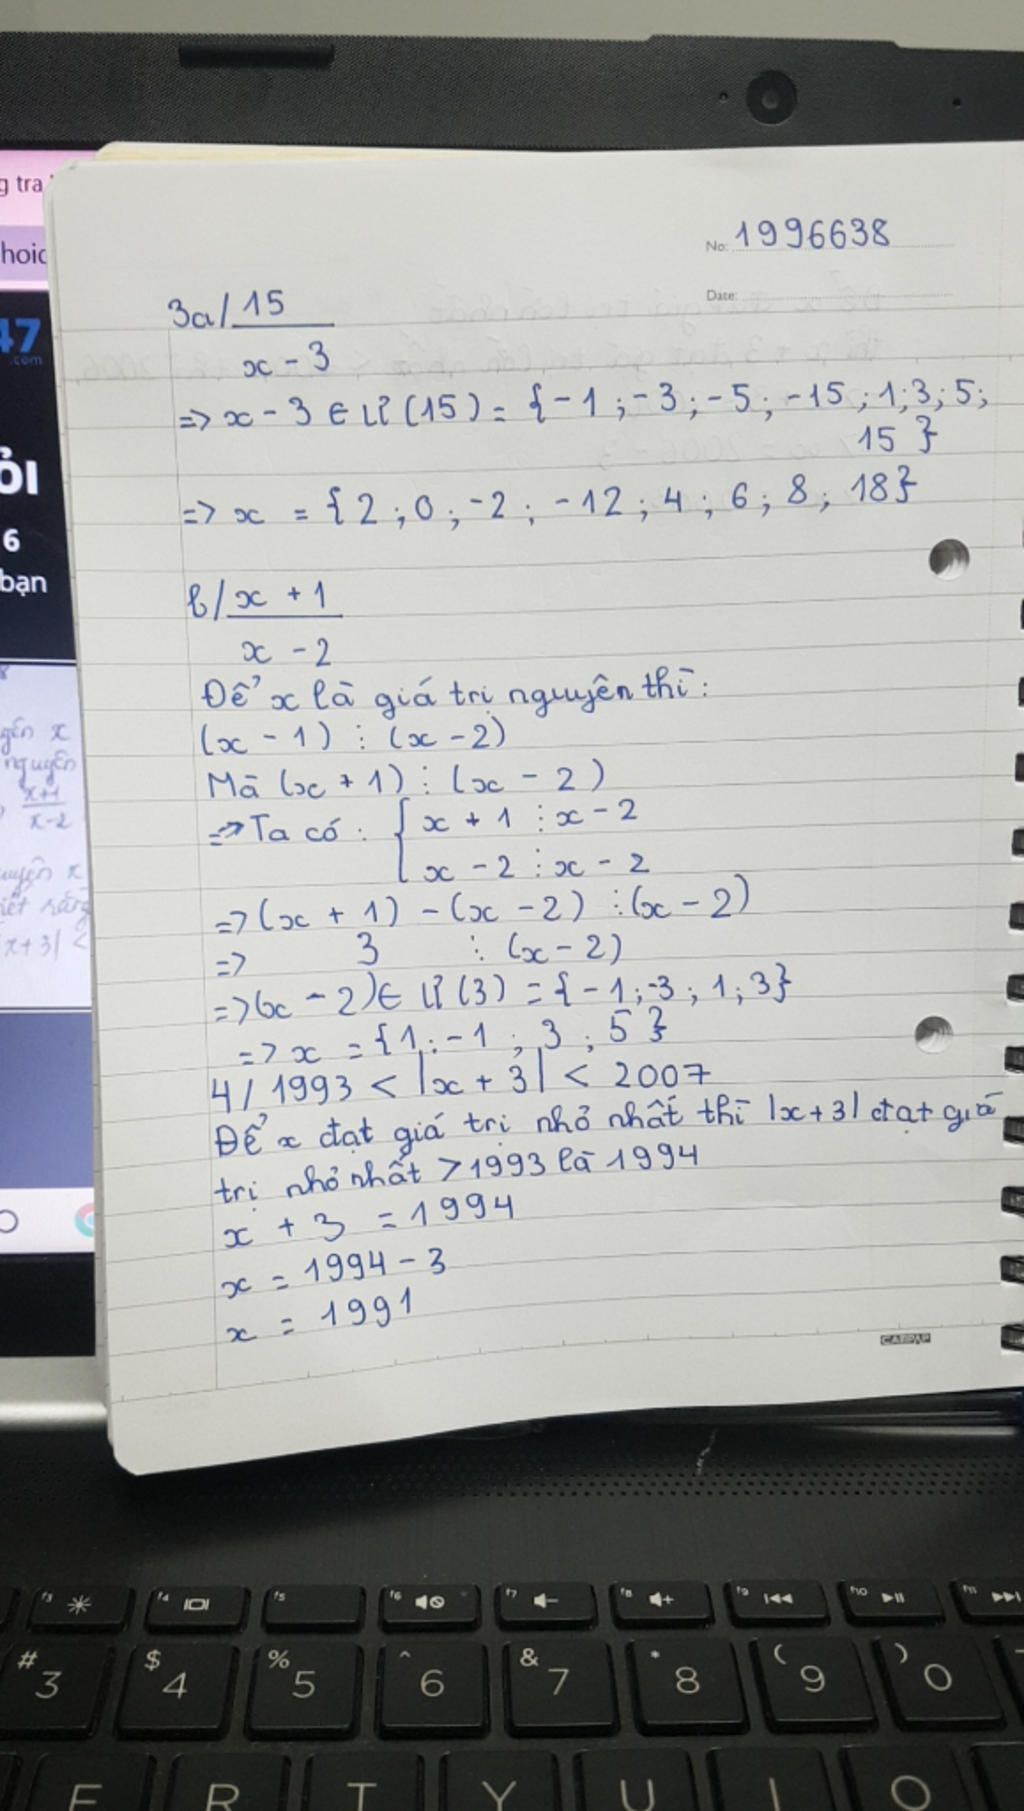 g tra
hoic
47
.com
ỎI
6
bạn
yên x
nguyên
x+1
x-2
x
iết rằng
x+3| <
No: 1996638
Date:
3a/ 15
x - 3
=> x - 3 ∈ Ư(15) = {-1 ; -3 ; -5 ; -15 ; 1 ; 3 ; 5 ;
15 }
=> x = {2 ; 0 ; -2 ; -12 ; 4 ; 6 ; 8 ; 18}
b/ x + 1
x - 2
Để x là giá trị nguyên thì :
(x - 1) ⋮ (x - 2)
Mà (x + 1) ⋮ (x - 2)
=> Ta có : { x + 1 ⋮ x - 2
x - 2 ⋮ x - 2
=> (x + 1) - (x - 2) ⋮ (x - 2)
=> 3 ⋮ (x - 2)
=> (x - 2) ∈ Ư(3) = {-1 ; -3 ; 1 ; 3}
=> x = {1 ; -1 ; 3 ; 5}
4/ 1993 < |x + 3| < 2007
Để x đạt giá trị nhỏ nhất thì |x+3| đạt giá
trị nhỏ nhất > 1993 là 1994
x + 3 = 1994
x = 1994 - 3
x = 1991
CAMPAP
f3 f4 f5 f6 f7 f8 f9 f10 f11
# $ % ^ & * ( )
3 4 5 6 7 8 9 0
E R T Y U I O